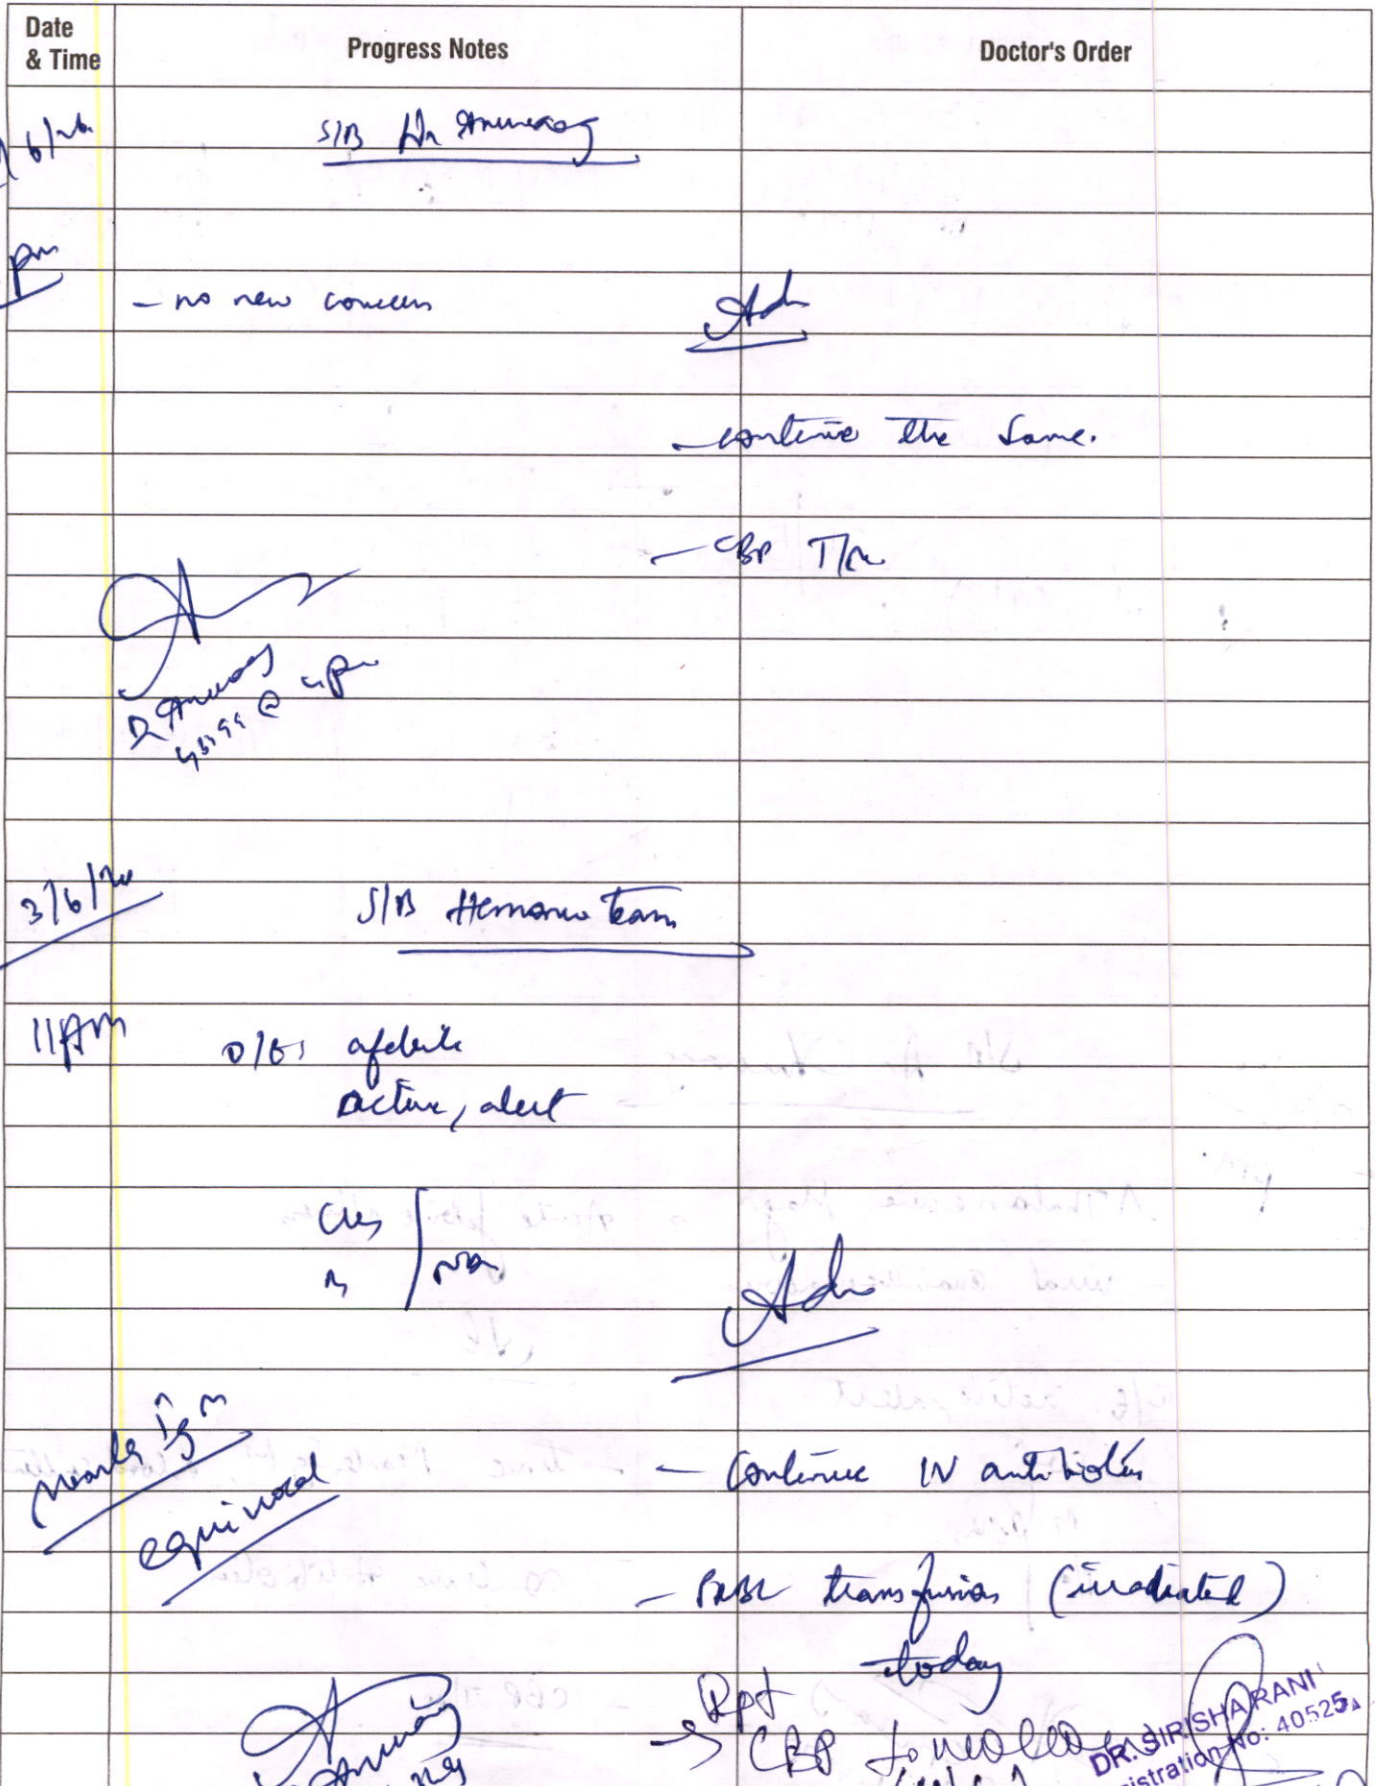 Date
& Time
Progress Notes
Doctor's Order
S/B Dr Anurag
pm
- no new concern
Adv
- continue the same.
- CBP T/m
Dr Anurag
@ 4pm
3/6/20
S/B Hemonc team
11Am
O/E: afebrile
active, alert
CVS
Adv
measles Igm
equivocal
- Continue IV antibiotics
- PRBC transfusion (irradiated)
today
→ Rpt
CBP tomorrow
DR. SIRISHA RANI
istration No: 40525